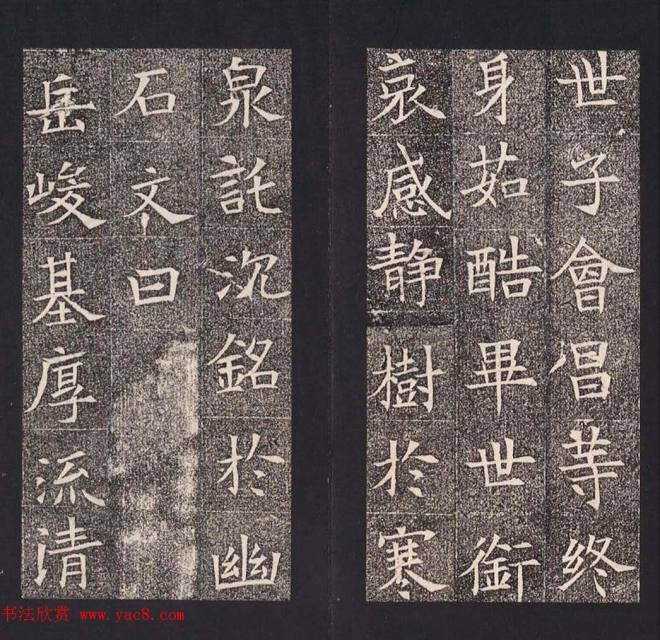 世子會昌䓁終
身茹酷畢世銜
哀感静樹於寒
泉託沉銘於幽
石文曰
岳峻基厚流清
书法欣赏 www.yac8.com